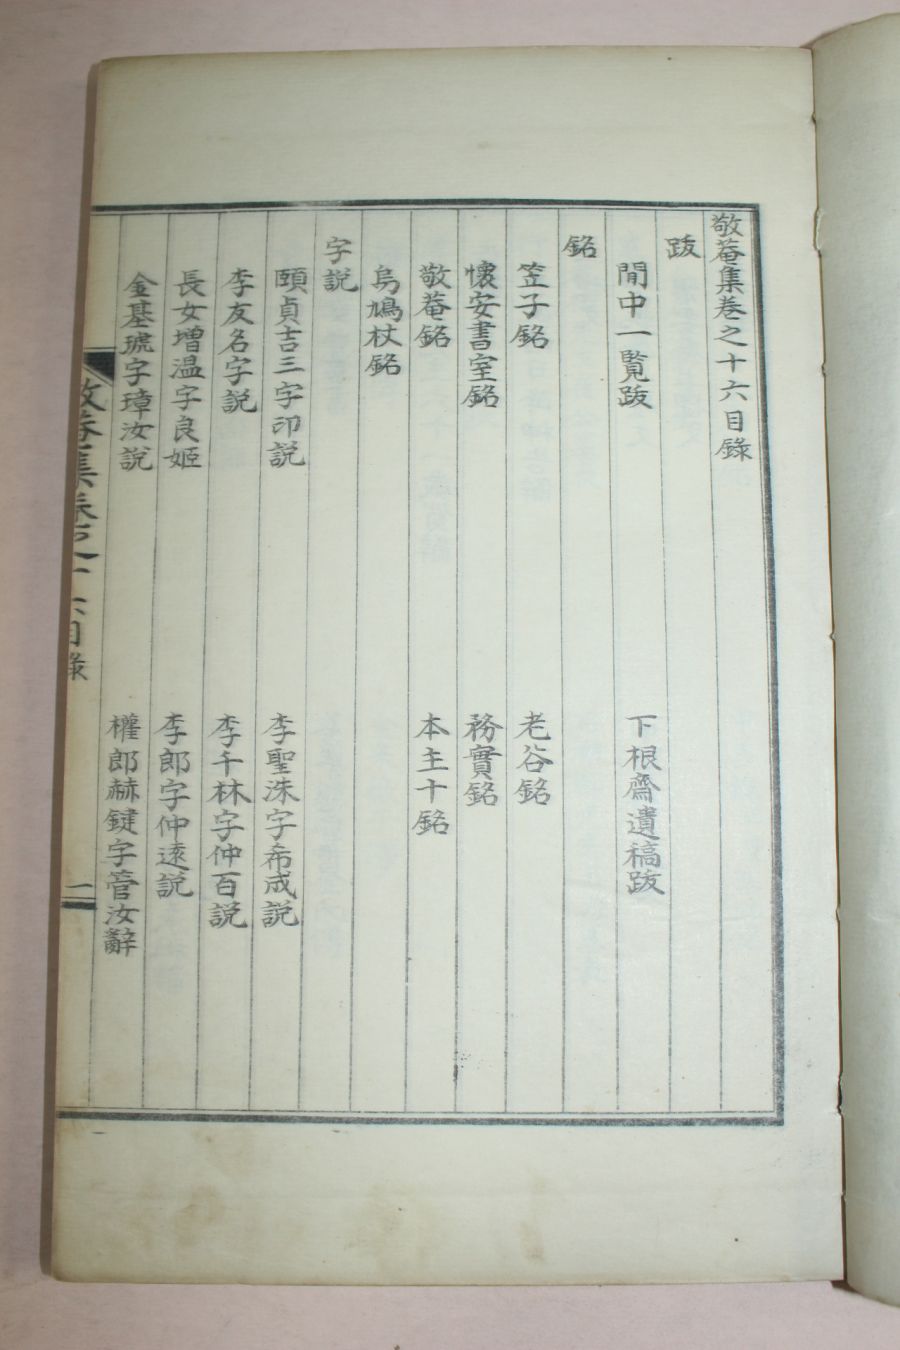 敬菴集卷之十六目錄
跋
閒中一覽跋
下根齋遺稿跋
銘
笠子銘
老谷銘
懷安書室銘
務實銘
敬菴銘
本主十銘
烏鳩杖銘
字説
頤貞吉三字印説
李聖洙字希成説
李友名字説
李千林字仲百説
長女增温字良姬
李郎字仲遠説
金基琥字璋汝説
權郎赫鍵字管汝辭
敬菴集卷之十六目錄
一